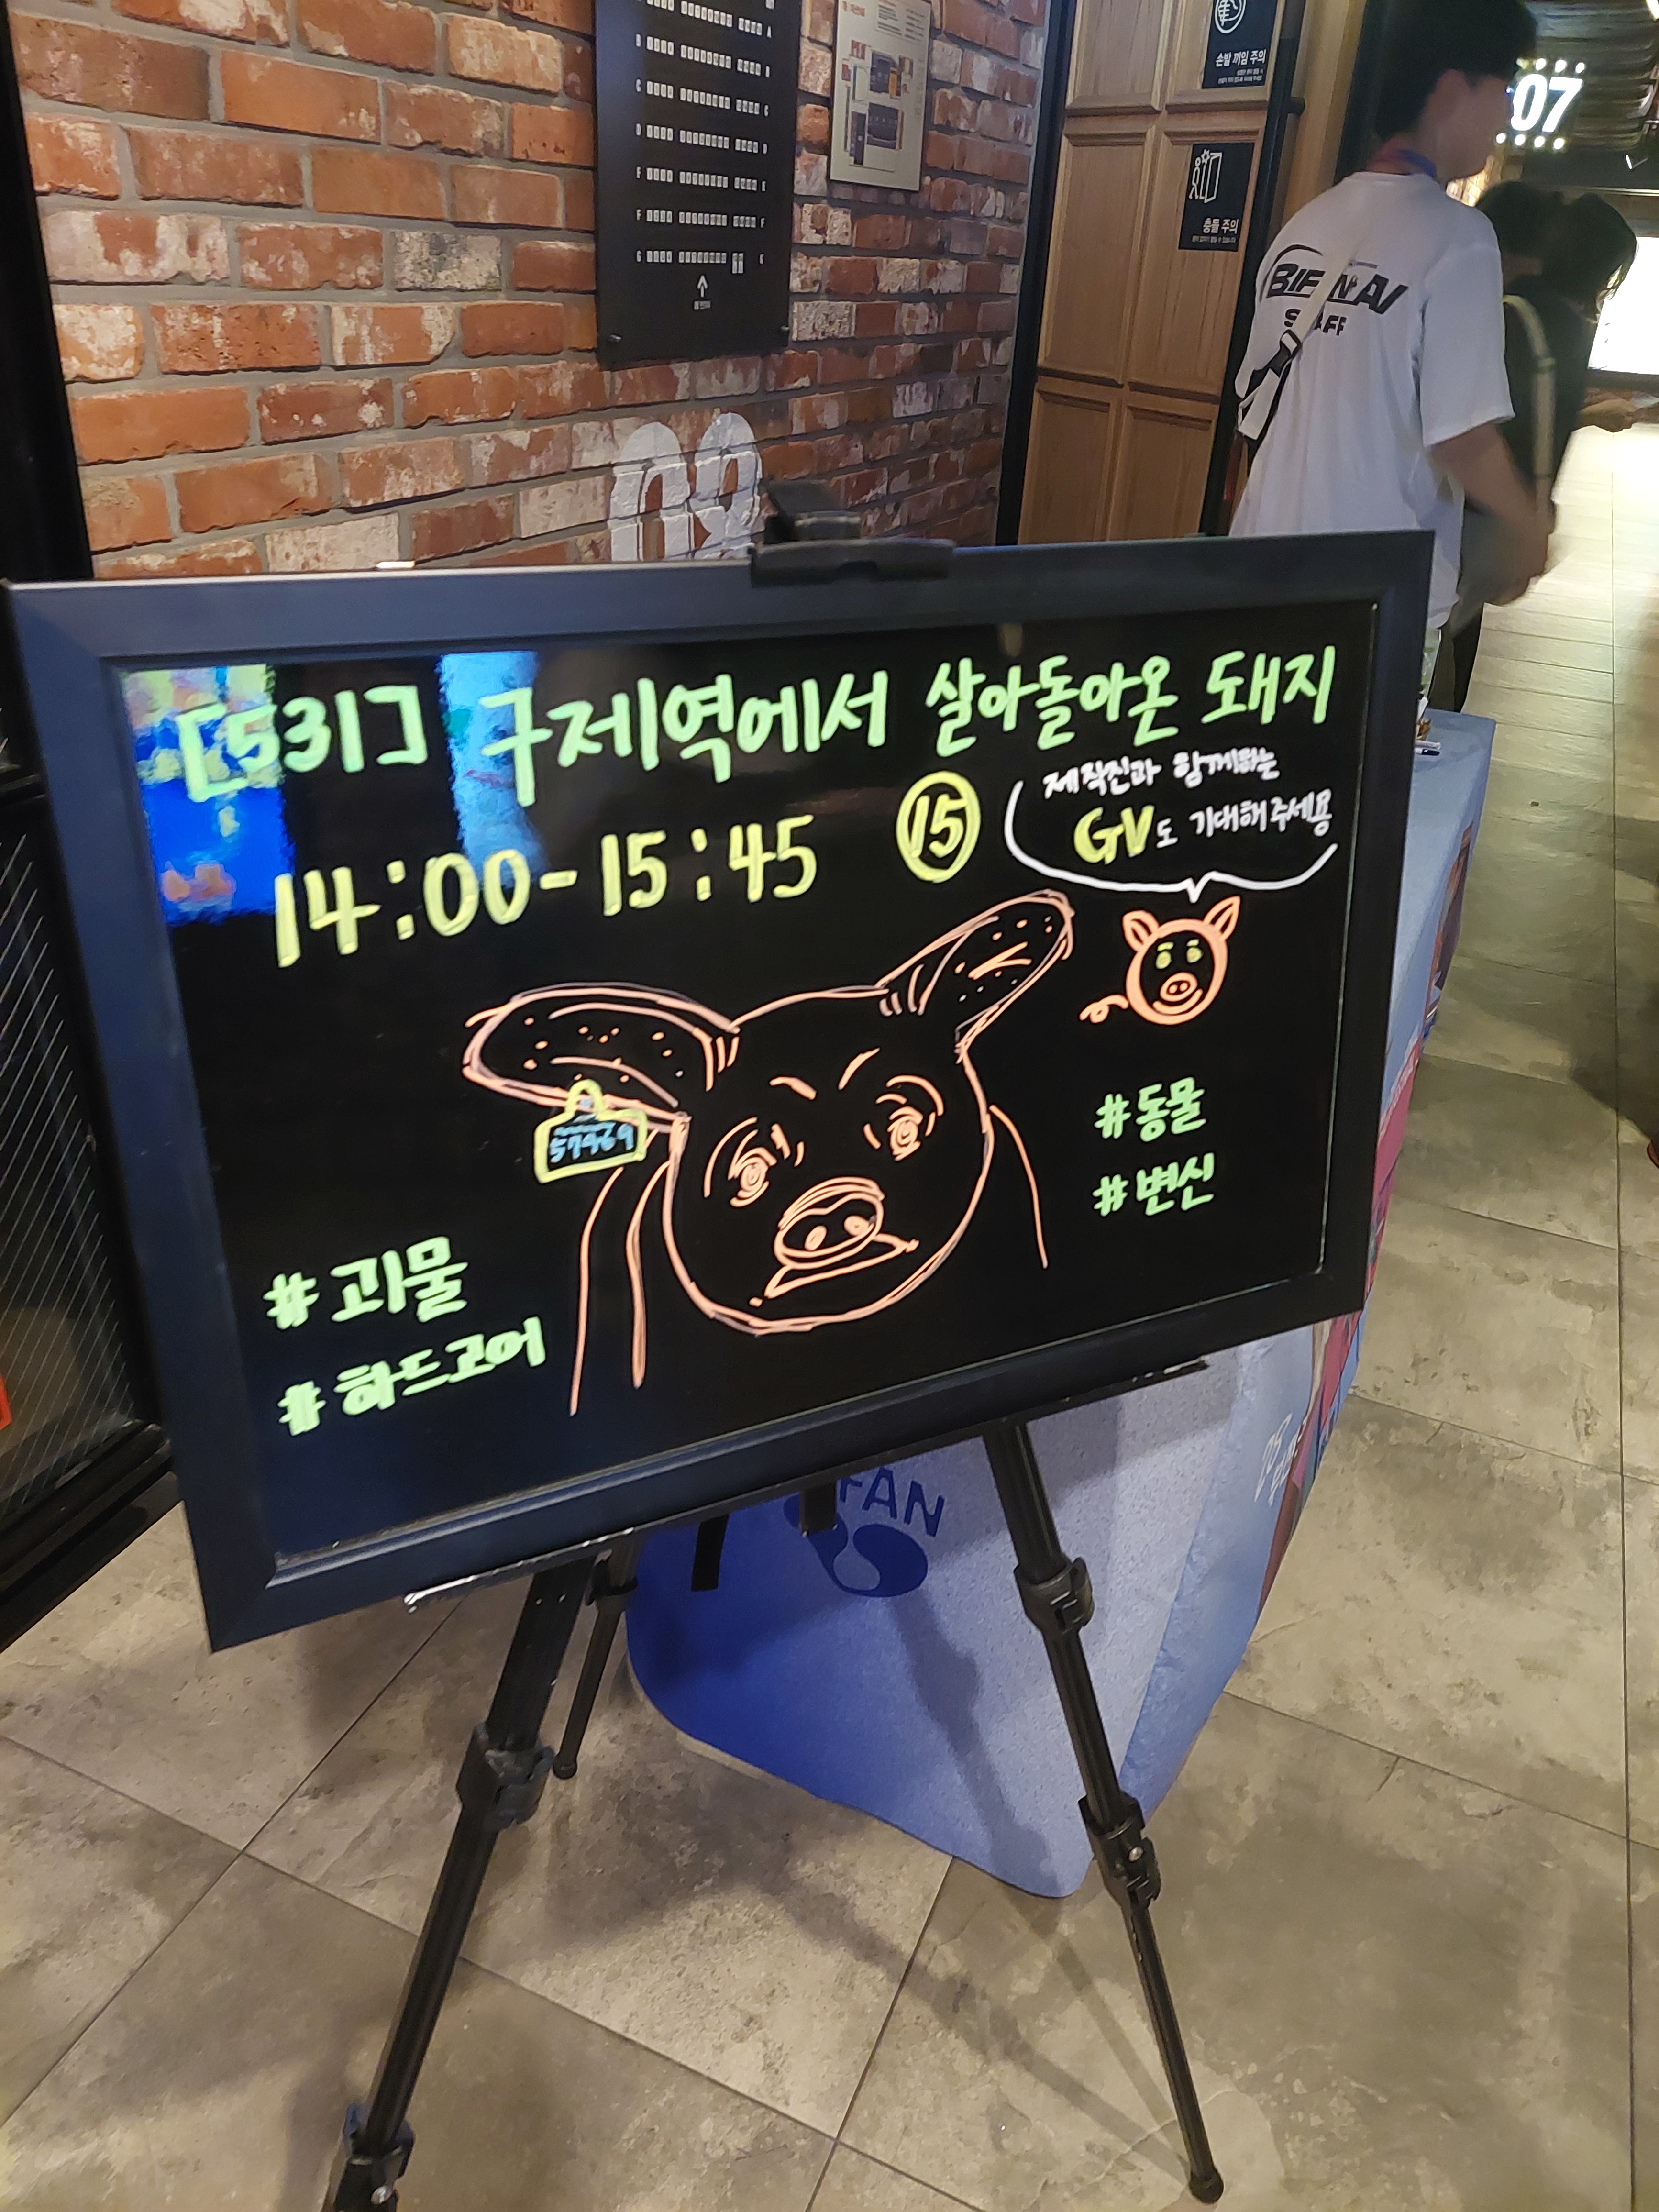 손발 끼임 주의
07
충돌 주의
BIFAN AI
STAFF
08
[531] 구제역에서 살아돌아온 돼지
14:00-15:45
15
제작진과 함께하는
GV도 기대해주세용
57969
#동물
#변신
#괴물
#하드고어
FAN